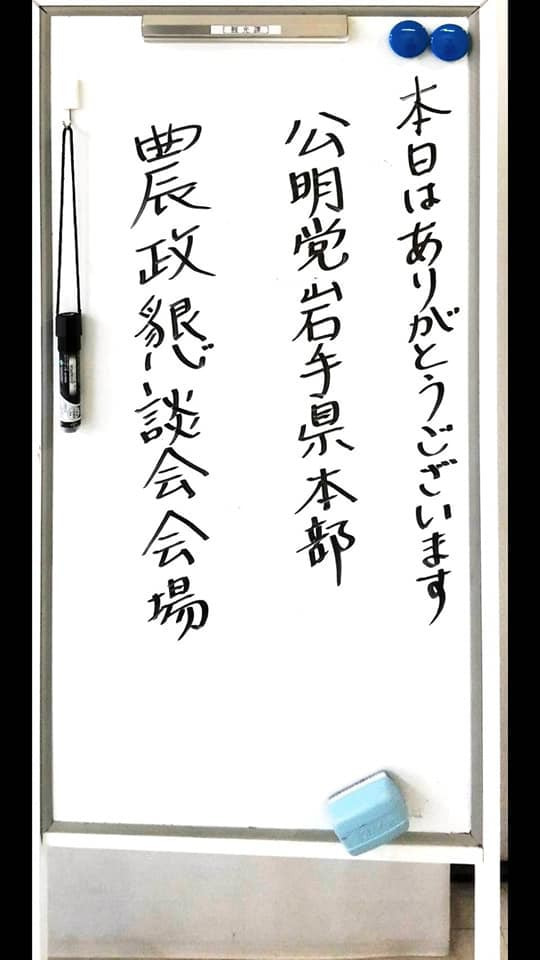 本日はありがとうございます
公明党岩手県本部
農政懇談会会場
〔観光課〕